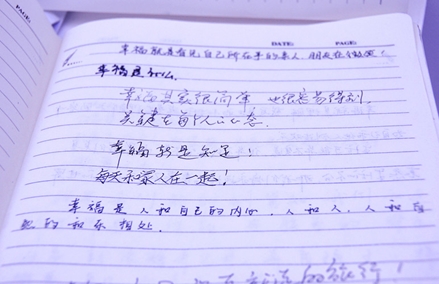 DATE: PAGE:
幸福就是看见自己所在乎的家人、朋友在微笑!
幸福是什么.
幸福其实很简单 也很容易得到,
关键在每个人心态.
幸福就是知足!
每天和家人在一起!
幸福是人和自己的内心,人和人,人和自
然的和乐相处.
的旅行!